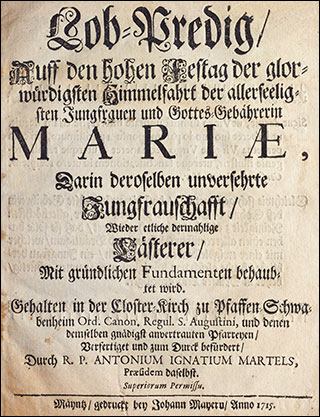 Lob-Predig/
Auff den hohen Festag der glor-
würdigsten Himmelfahrt der allerseelig-
sten Jungfrauen und Gottes-Gebährerin
MARIÆ,
Darin deroselben unversehrte
Jungfrauschafft/
Wieder etliche dermahlige
Lästerer/
Mit gründlichen Fundamenten behaub-
tet wird.
Gehalten in der Closter-Kirch zu Pfaffen-Schwa-
benheim Ord. Canon. Regul. S. Augustini, und denen
demselben gnädigst anvertrauten Pfarreyen/
Verfertiget und zum Druck befürdert/
Durch R. P. ANTONIUM IGNATIUM MARTELS,
Præsidem daselbst.
Superiorum Permissu.
Mäyntz/ gedruckt bey Johann Mayern/ Anno 1715.